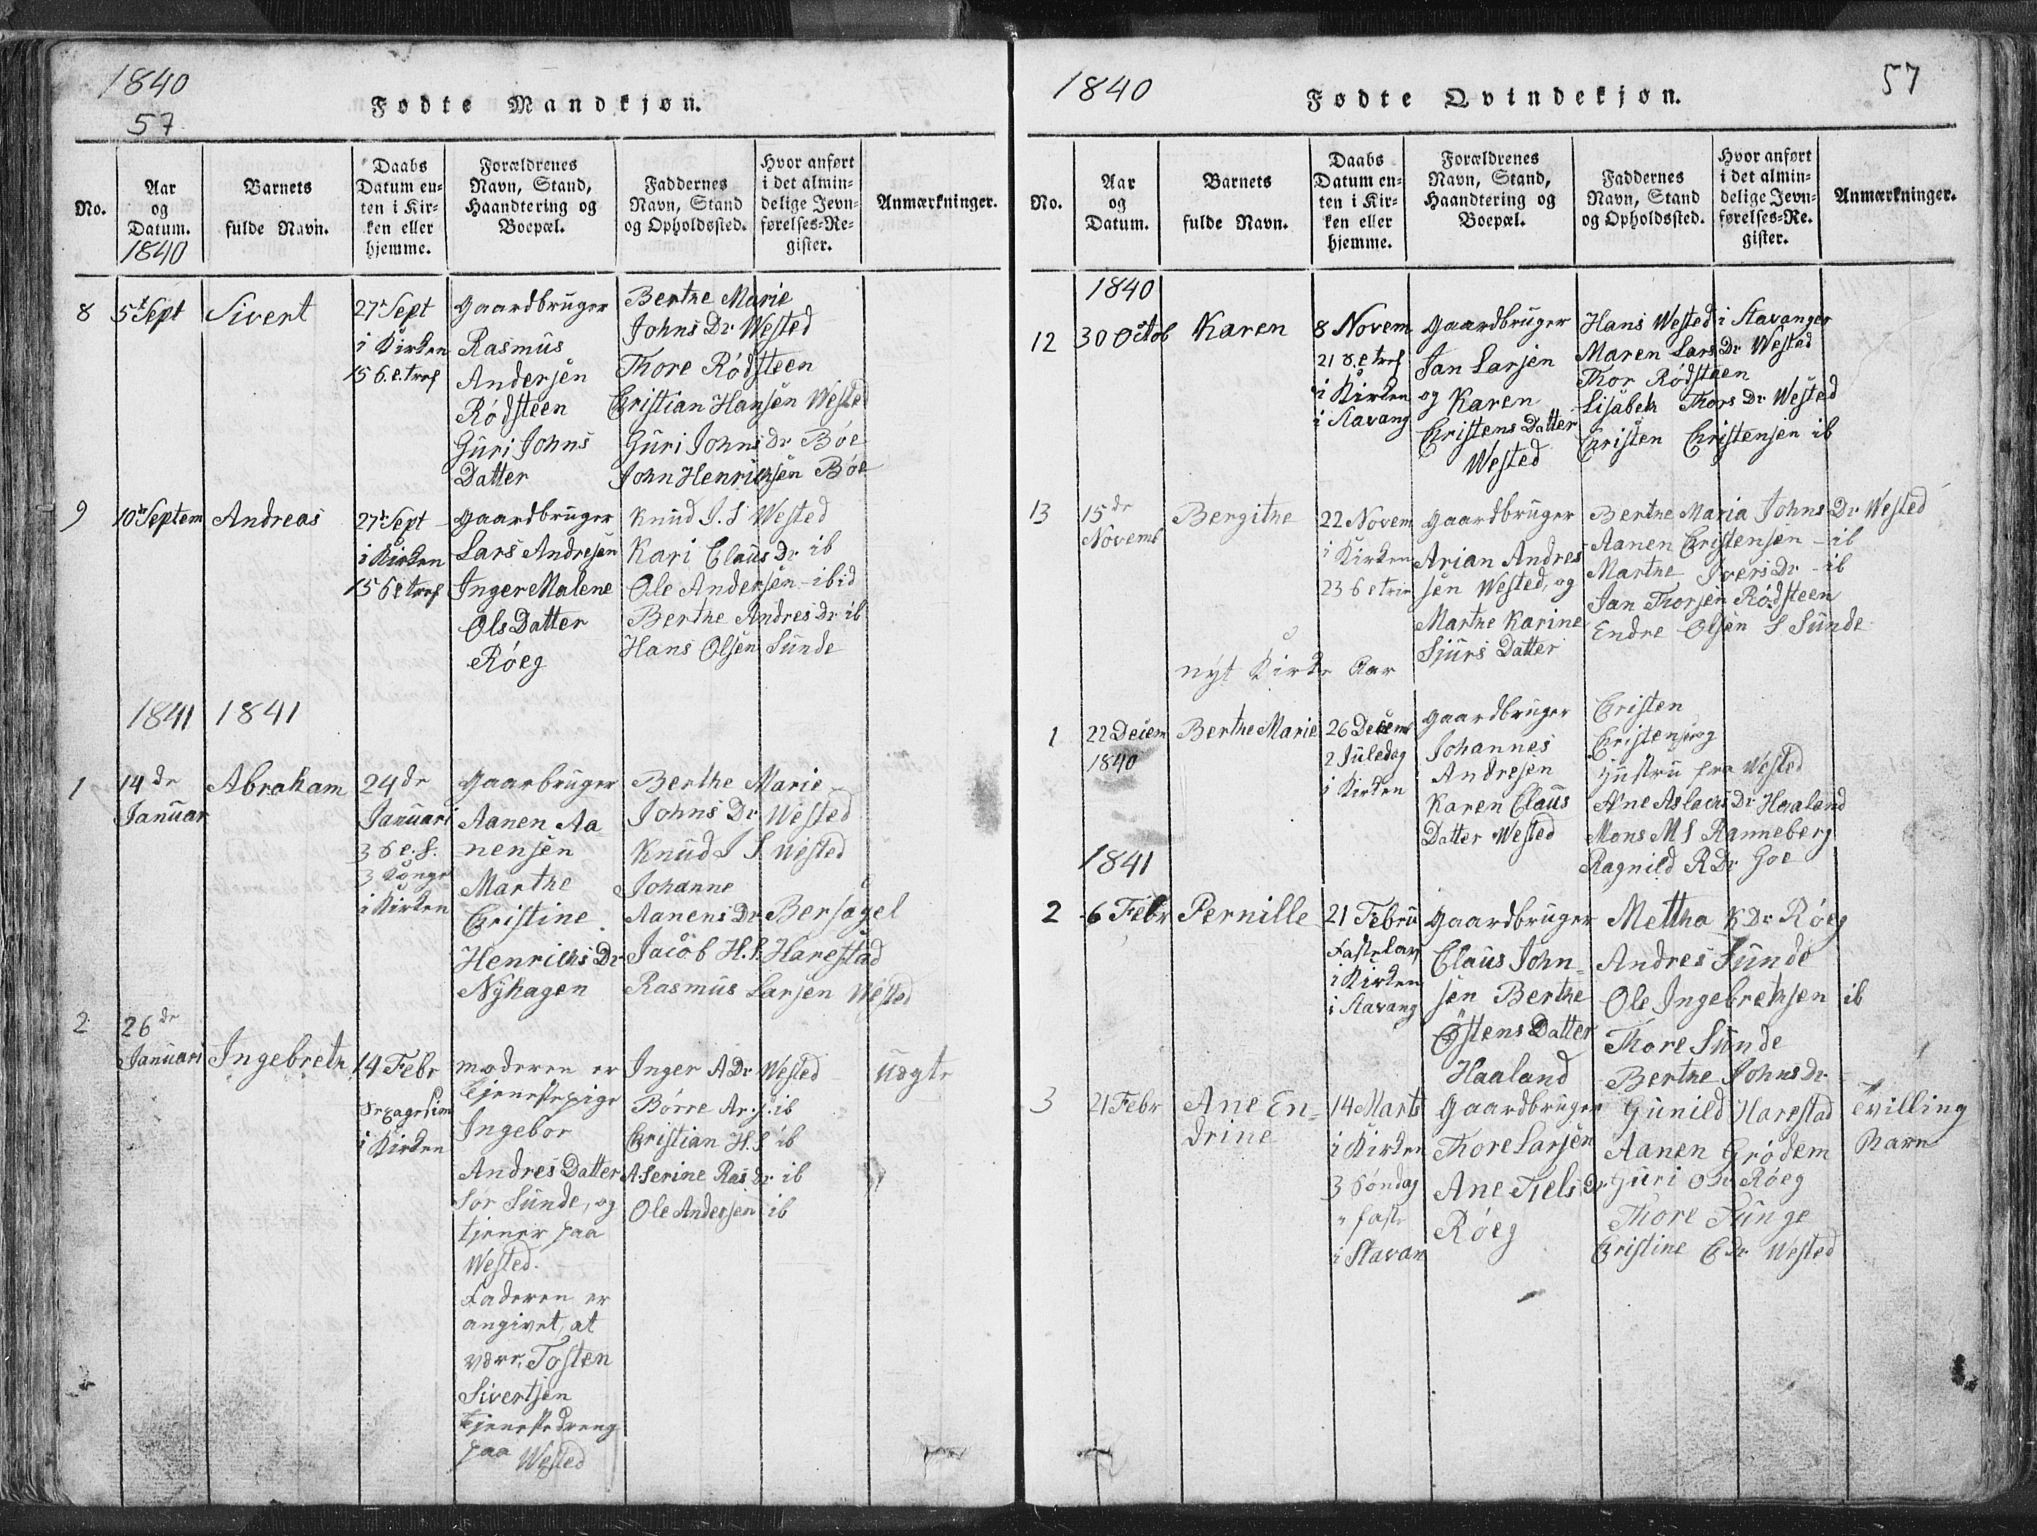 1840
57
Fødte Mandkjøn.
No.
Aar
og
Datum.
1840
Barnets
fulde Navn.
Daabs
Datum en-
ten i Kir-
ken eller
hjemme.
Forældrenes
Navn, Stand,
Haandtering og
Boepæl.
Faddernes
Navn, Stand
og Opholdssted.
Hvor anført
i det almin-
delige Jevn-
førelses-Re-
gister.
Anmærkninger.
8
5t Sept
Sivert
27r Sept
i Kirken
15 S. e. tref
Gaardbruger
Rasmus
Andersen
Rødsteen
Guri Johns
Datter
Berthe Marie
Johns Dr Wested
Thore Rødsteen
Christian Hansen Wested
Guri Johns Dr Bøe
John Henrichsen Bøe
9
10t Septem
Andreas
27r Sept
i Kirken
15 S e tref
Gaardbruger
Lars Andresen
Inger Malene
Ols Datter
Røeg
Knud J. S Wested
Kari Claus Dr ib
Ole Andersen - ibid
Berthe Andres Dr ib
Hans Olsen Sunde
1841 1841
1
14de
Januar
Abraham
24de
Januari
3 S e. f.
3 Konge
i Kirken
Gaarbruger
Aanen Aa
nensen
Marthe
Christine
Henrichs Dr
Nyhagen
Berthe Marie
Johns Dr Wested
Knud J S Wested
Johanne
Aanens Dr Bersagel
Jacob H. S. Harestad
Rasmus Larsen Wested
2
26de
Januari
Ingebreth
14 Febr
Sexagesim
i Kirken
moderen er
tjenestepige
Ingebor
Andres Datter
Sør Sunde, og
tjener paa
Wested.
Faderen er
angivet, at
være, Tosten
Sivertsen
tjenestedreng
paa Wested
Inger A Dr Wested
Børre Ar. S. ib
Christian H. S ib
Aserine Ras Dr ib
Ole Andersen ib
Uægte
1840
57
Fødte Qvindekjøn.
No.
Aar
og
Datum.
Barnets
fulde Navn.
Daabs
Datum en-
ten i Kir-
ken eller
hjemme.
Forældrenes
Navn, Stand,
Haandtering og
Boepæl.
Faddernes
Navn, Stand
og Opholdssted.
Hvor anført
i det almin-
delige Jevn-
førelses-Re-
gister.
Anmærkninger.
1840
12
30 Octob
Karen
8 Novem
21 S. e tref
i Kirken
i Stavang
Gaardbruger
Jan Larsen
og Karen
Christens Datter
Wested
Hans Wested i Stavanger
Maren Lars Dr Wested
Thor Rødsteen
Lisabeth Thors Dr Wested
Christen Christensen ib
13
15de
Novemb
Bergithe
22 Novem
i Kirken
23 S e trin
Gaardbruger
Arian Andres
sen Wested, og
Marthe Karine
Sjurs Datter
Berthe Maria Johns Dr Wested
Aanen Christensen - ib
Marthe Ivers Dr - ib
Jan Thorsen Rødsteen
Endre Olsen S Sunde
nyt Kirke Aar
1
22 Decem
1840
Berthe Marie
26 Decemb
2 Juledag
i Kirken
Gaardbruger
Johannes
Andresen
Karen Claus
Datter Wested
Christen
Christensen og
Hustru fra Wested
Ane Aslachs Dr Haaland
Mons M S Ranneberg
Ragnild R Dr Goe
1841
2
6 Febr
Pernille
21 Febru
Fastelav
i Kirken
i Stavang
Gaardbruger
Claus John-
sen Berthe
Østens Datter
Haaland
Mettha K Dr Røeg
Andres Sunde
Ole Ingebrethsen ib
Thore Sunde
Berthe Johns Dr
3
21 Febr
Ane En-
drine
14 Marts
i Kirken
3 Søndag
i faste
i Stavan
Gaardbruger
Thore Larsen
Ane Niels Dr
Røeg
Gunild Harestad
Aanen Grødem
Guri O Dr Røeg
Thore Tunge
Christine C Dr Wested
tvilling
Barn